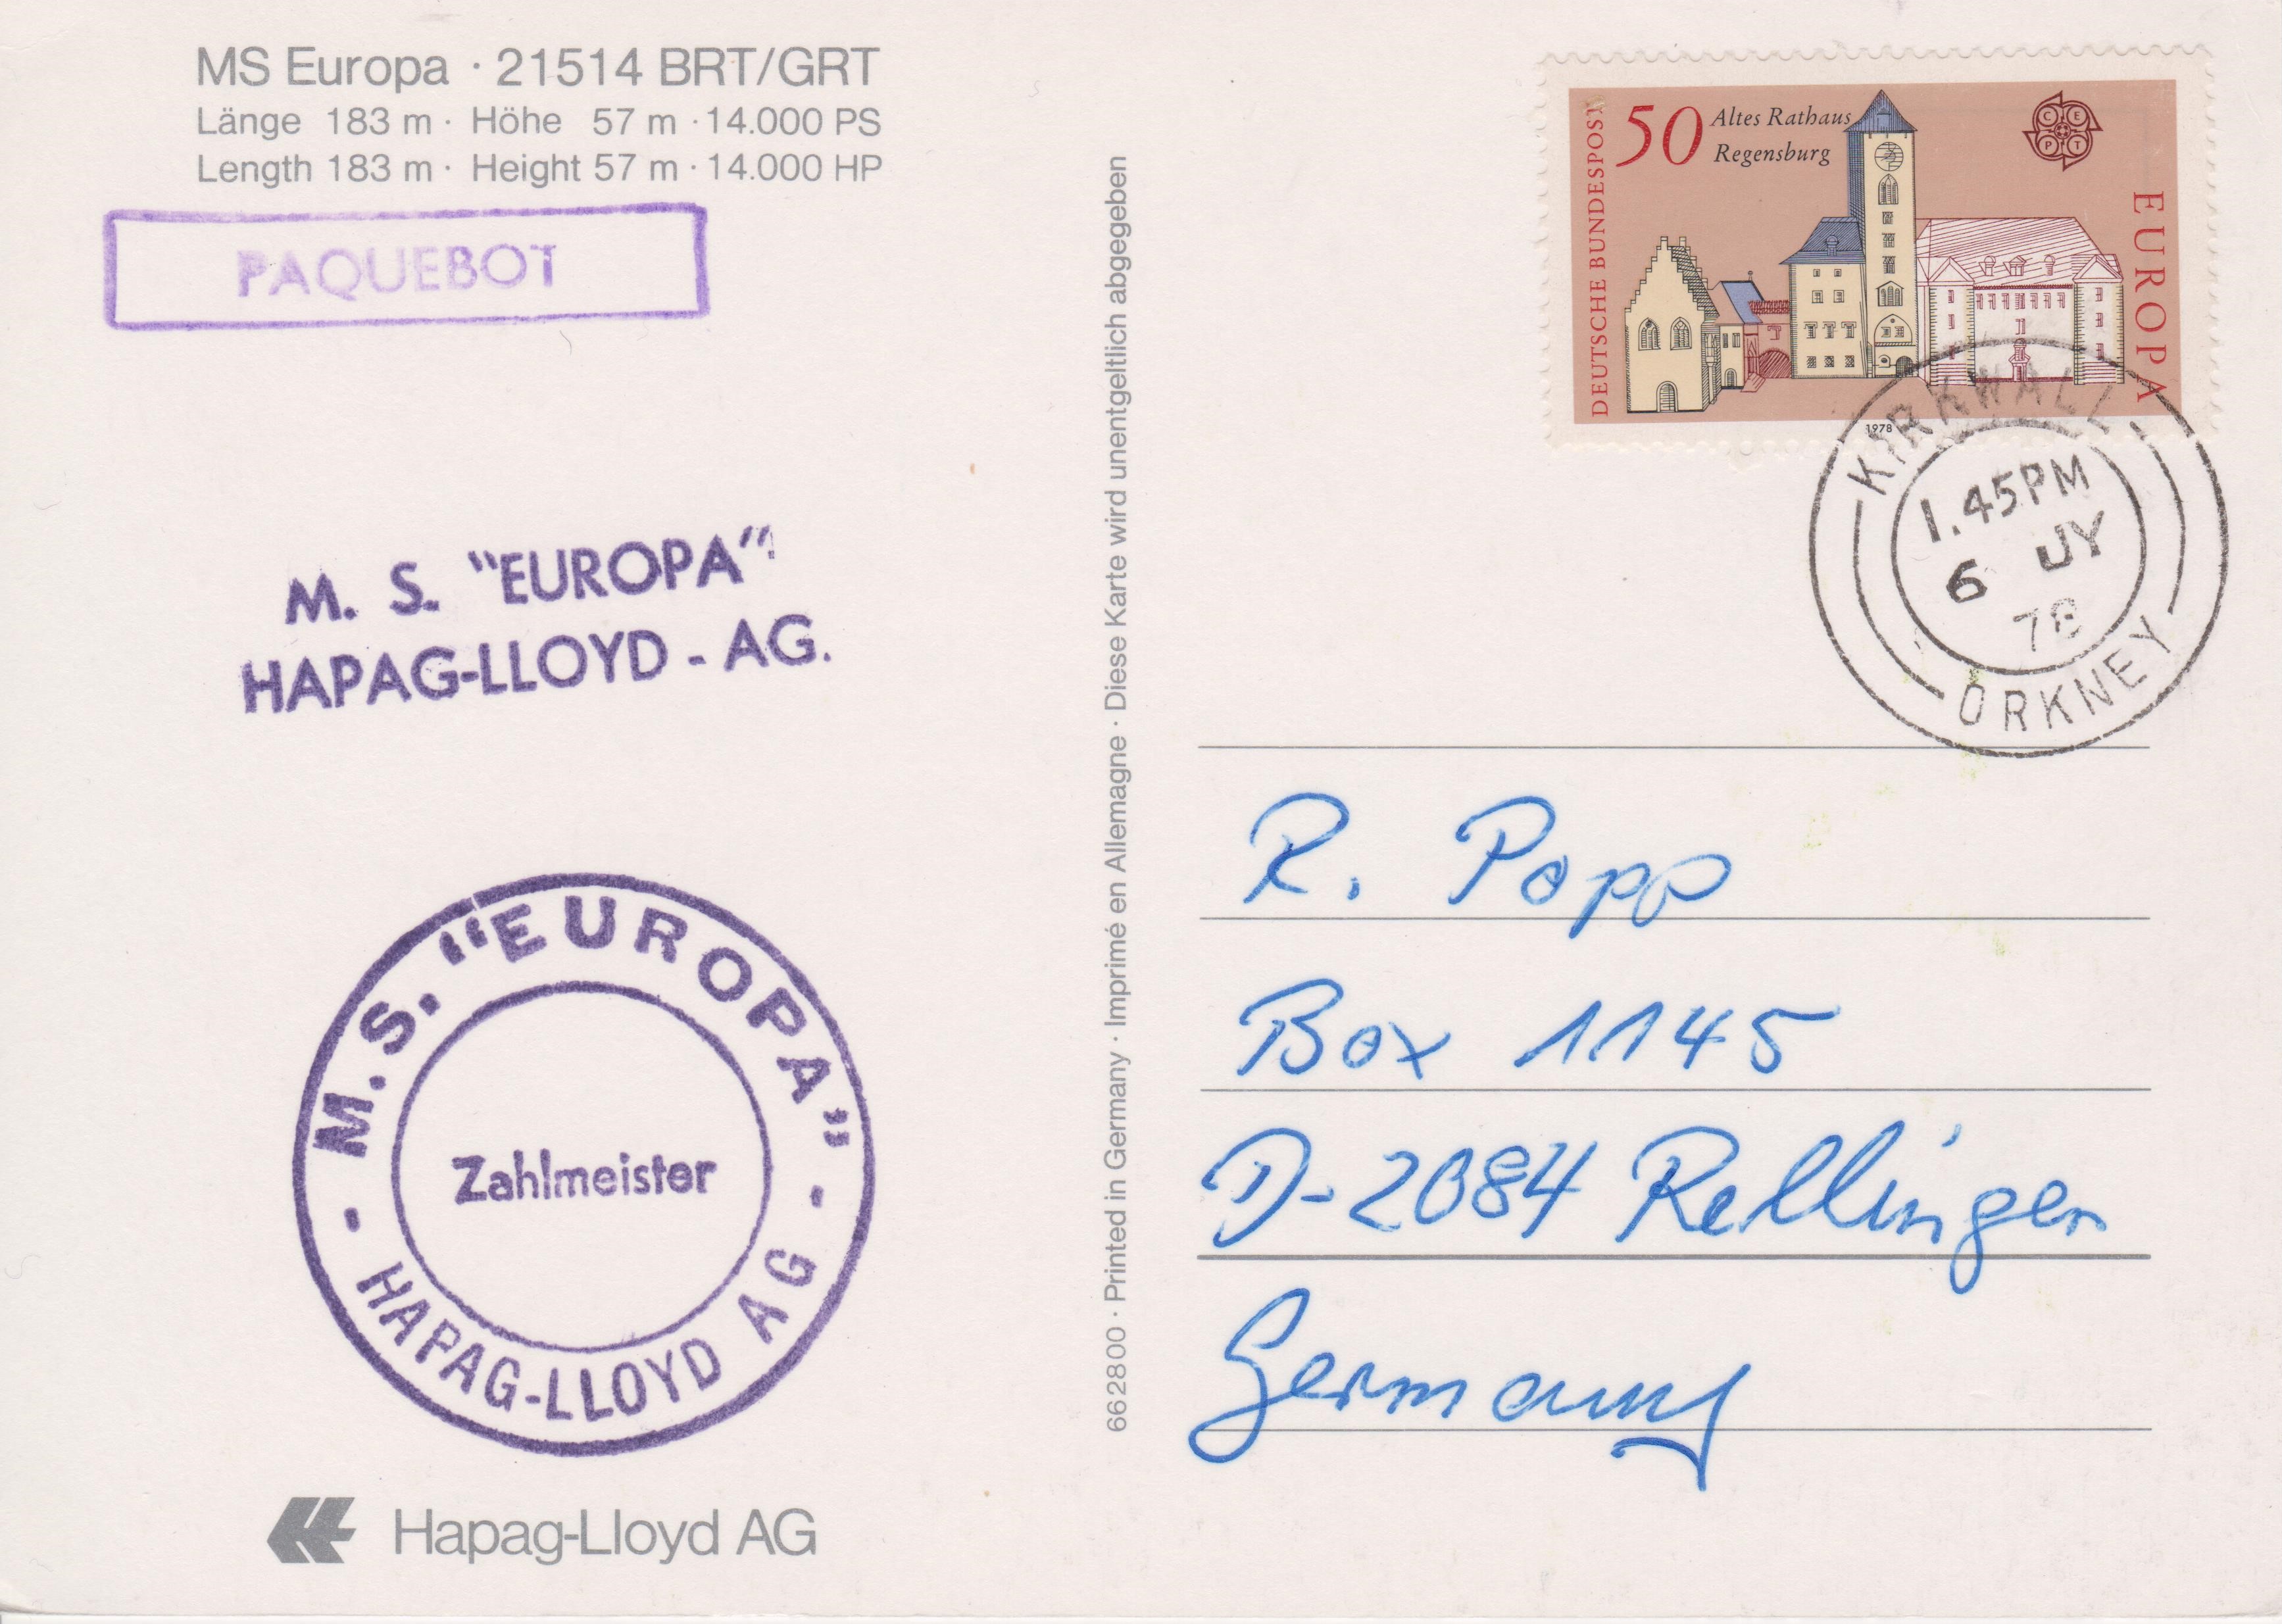 MS Europa · 21514 BRT/GRT
Länge 183 m · Höhe 57 m · 14.000 PS
Length 183 m · Height 57 m · 14.000 HP
PAQUEBOT
M. S. "EUROPA"
HAPAG-LLOYD - AG.
M.S. "EUROPA"
Zahlmeister
- HAPAG-LLOYD AG -
Hapag-Lloyd AG
662800 · Printed in Germany · Imprimé en Allemagne · Diese Karte wird unentgeltlich abgegeben
DEUTSCHE BUNDESPOST
50
Altes Rathaus
Regensburg
CEPT
EUROPA
1978
KIRKWALL
1.45PM
6 JY
78
ORKNEY
R. Popp
Box 1145
D-2084 Rellingen
Germany